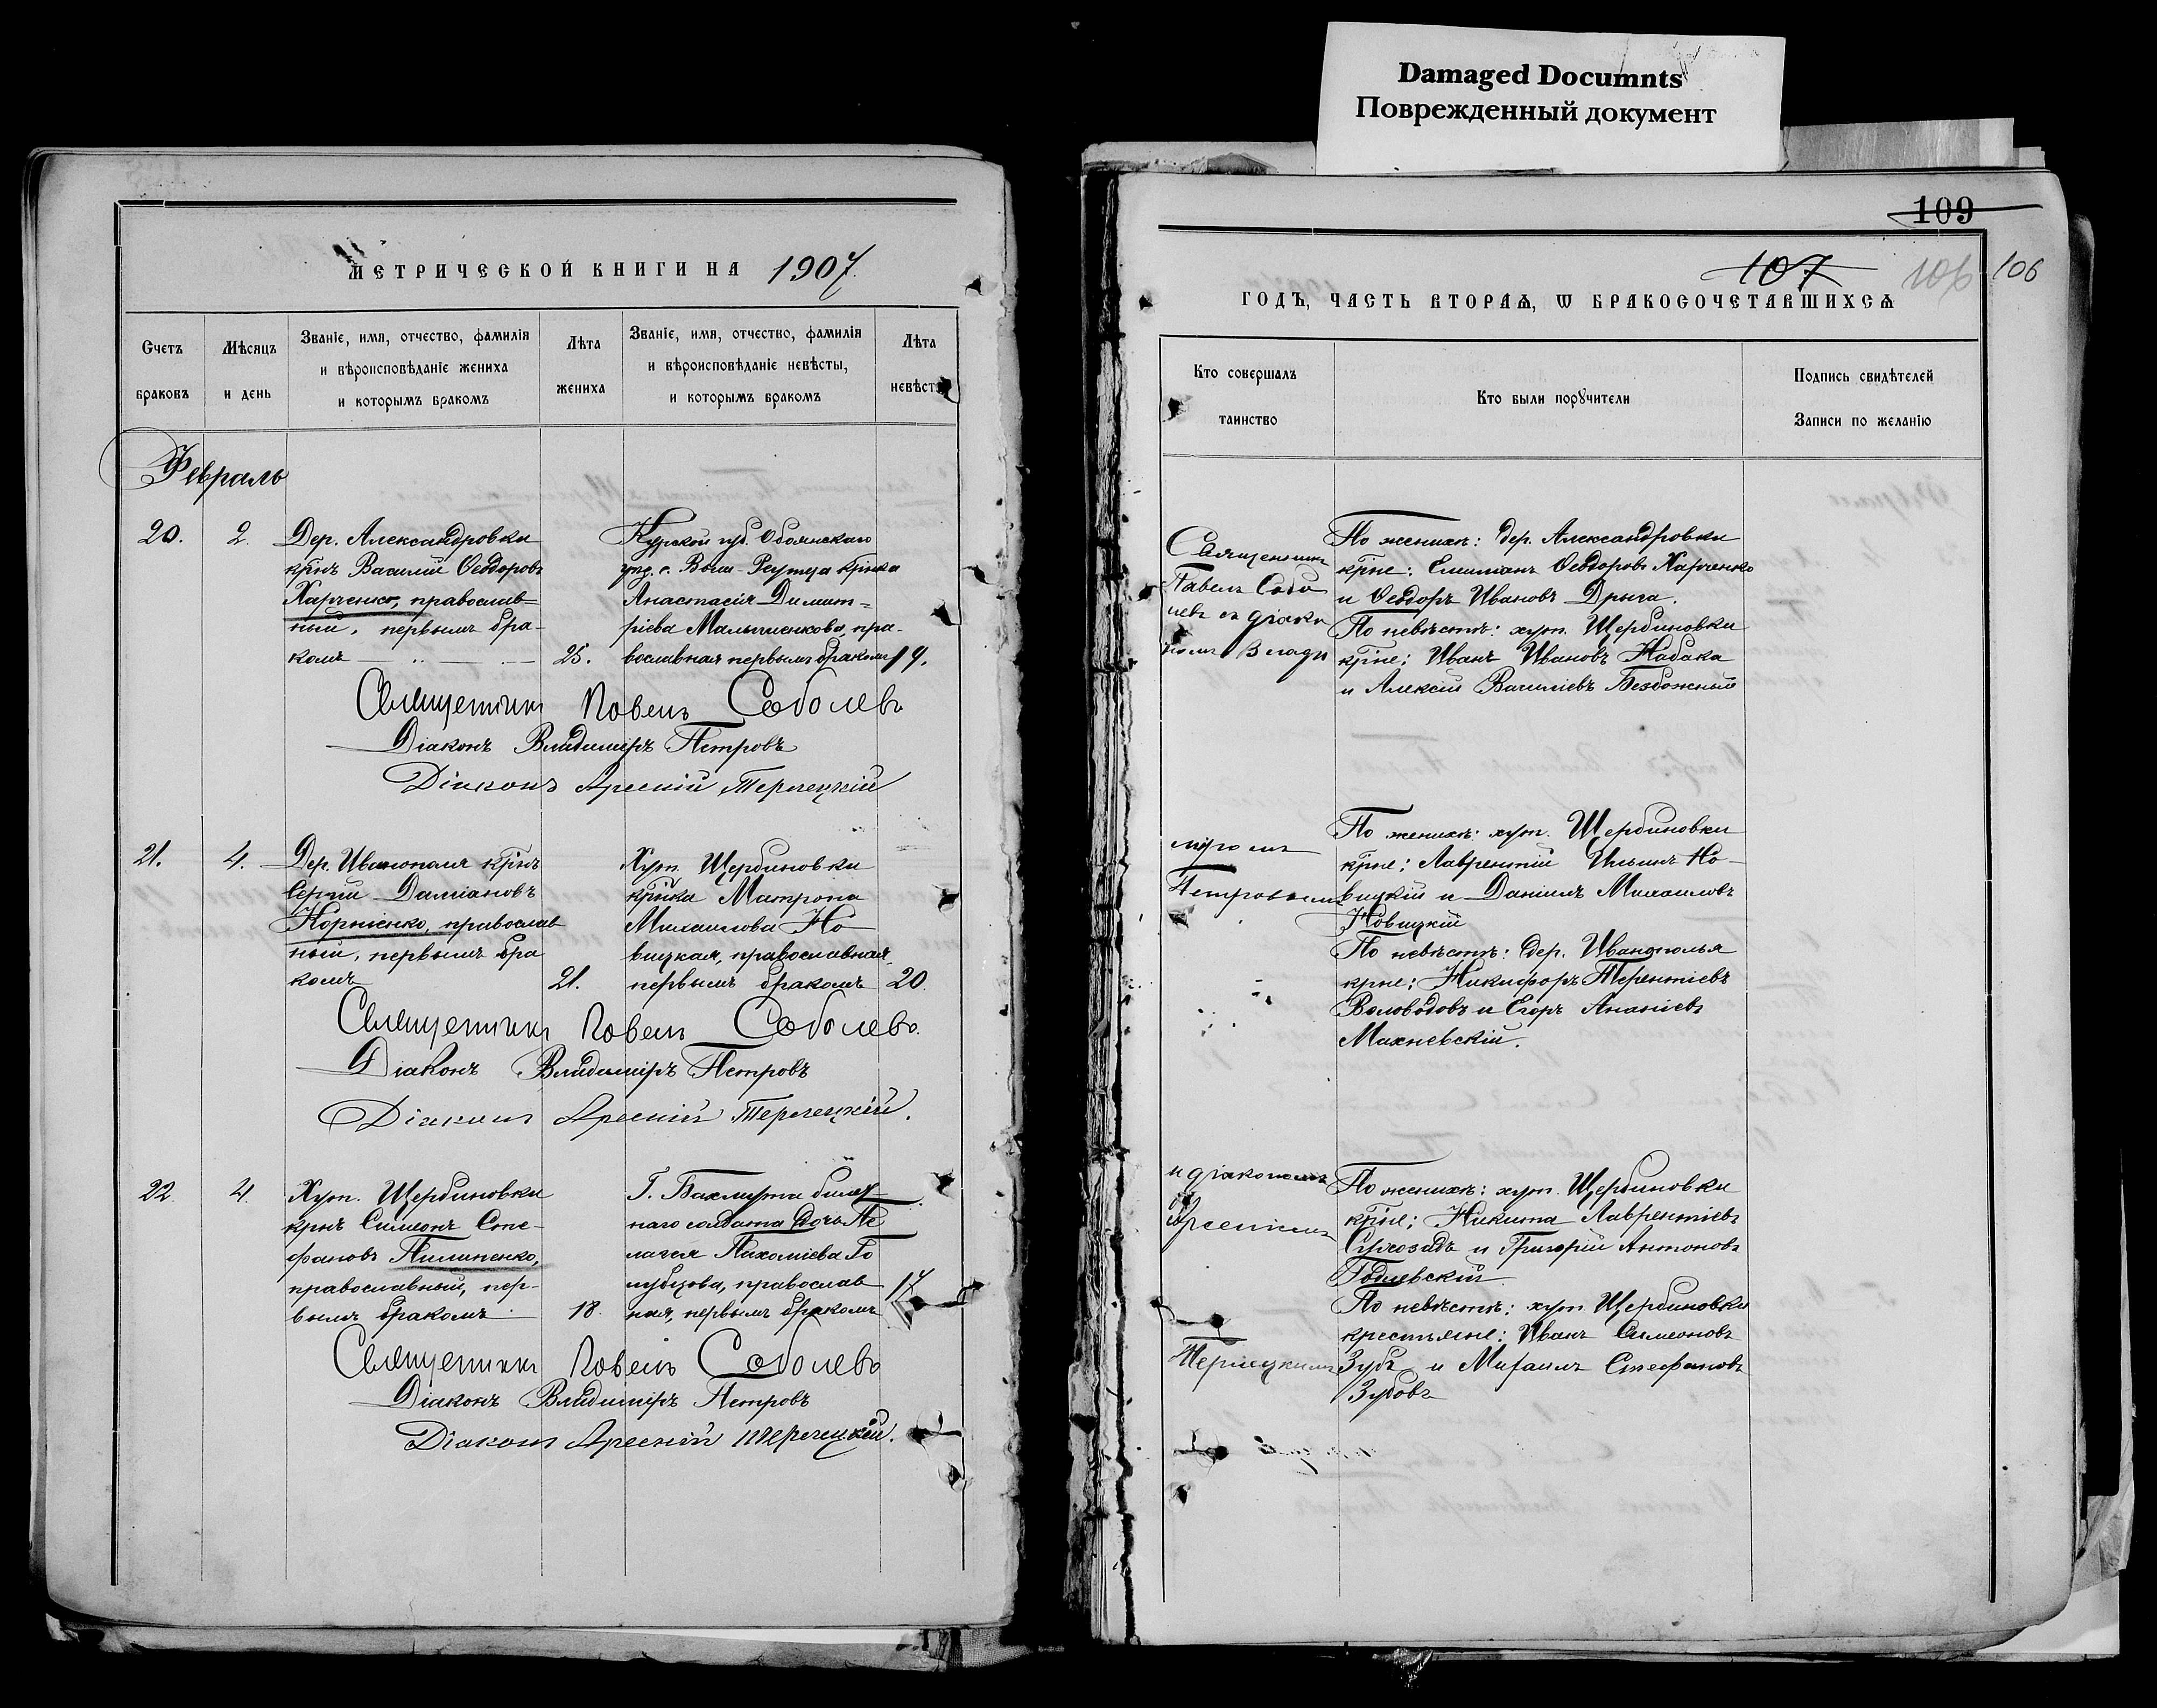 Damaged Documnts
Поврежденный документ
МЕТРИЧЕСКОЙ КНИГИ НА 1907.
Счетъ браковъ
Мѣсяцъ и день
Званіе, имя, отчество, фамилія
и вѣроисповѣданіе жениха
и которымъ бракомъ
Лѣта жениха
Званіе, имя, отчество, фамилія
и вѣроисповѣданіе невѣсты,
и которымъ бракомъ
Лѣта
Февраль
20.
2.
Дер. Александровки
крнъ Василій Ѳеодоровъ
Харченко, православ=
ный, первымъ бра-
комъ
25.
Курской губ. Обоянскаго
уѣз. с. Выш-Реутца крнка
Анастасія Димит=
ріева
пра-
вославная первымъ бракомъ
19.
Священникъ Павелъ Соболевъ
Діаконъ Владиміръ Петровъ
Діаконъ Арсеній Терлецкій
21.
4.
Дер. Иванополя крнъ
Сергій Даміановъ
Корніенко, православ
ный, первымъ бра
комъ
21.
Хут. Щербиновки
крнка Матрона
Михаилова Но
вицкая, православная
первымъ бракомъ
20.
Священникъ Павелъ Соболевъ.
Діаконъ Владиміръ Петровъ
Діаконъ Арсеній Терлецкій.
22.
4.
Хут. Щербиновки
крнъ Симеонъ Сте-
фановъ Пилипенко,
православный, пер-
вымъ бракомъ
18.
Г. Бахмута билет
наго солдата дочь Пе
лагея Пахоміева Го
лубцова, православ
ная, первымъ бракомъ
17
Священникъ Павелъ Соболевъ
Діаконъ Владиміръ Петровъ
Діаконъ Арсеній Терлецкій.
109
107
106
106
ГОДЪ, ЧАСТЬ ВТОРАЯ, Ѡ БРАКОСОЧЕТАВШИХСЯ
Кто совершалъ
таинство
Кто были порꙋчители
Подпись свидѣтелей
Записи по желанію
Священникъ
Павелъ Собо
левъ съ діако
номъ Влади
По женихѣ: дер. Александровки
крне: Емиліанъ Ѳеодоровъ Харченко
и Ѳеодоръ Ивановъ Дрыга.
По невѣстѣ: хут. Щербиновки
крне: Иванъ Ивановъ Набака
и Алексій Василіевъ Безбожный
міромъ
Петровымъ
По женихѣ: хут. Щербиновки
крне: Лаврентій Ильинъ Но-
вицкій и Даніилъ Михаиловъ
Новицкій
По невѣстѣ: дер. Иванополья
крне: Никифоръ Терентіевъ
Воловодовъ и Егоръ Ананіевъ
Махневскій.
и діакономъ
Арсеніемъ
Терлецкимъ
По женихѣ: хут. Щербиновки
крне: Никита Лаврентіевъ
и Григорій Антоновъ
По невѣстѣ: хут. Щербиновки
крестьяне: Иванъ Симеоновъ
Зубъ и Михаилъ Стефановъ
Зубовъ